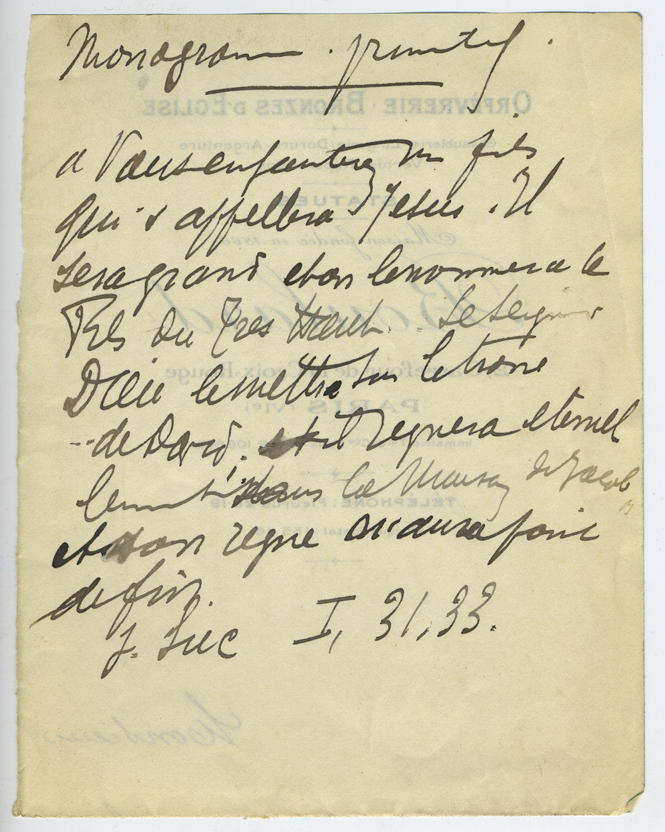 Monogramme primitif.
a Vous enfanterez un fils
qui s'appellera Jesus. Il
sera grand et on le nommera le
Fils du Tres Haut. Le Seigneur
Dieu le mettra sur le trone
de David. et il regnera eternel
lement dans la Maison de Jacob
et son regne n'aura point
de fin.
S. Luc I, 31, 33.
ORFÈVRERIE BRONZES D'ÉGLISE
STATUES
Maison fondée en
Carrefour de la Croix-Rouge
PARIS (VIe)
TÉLÉPHONE: FLEURUS
Monsieur